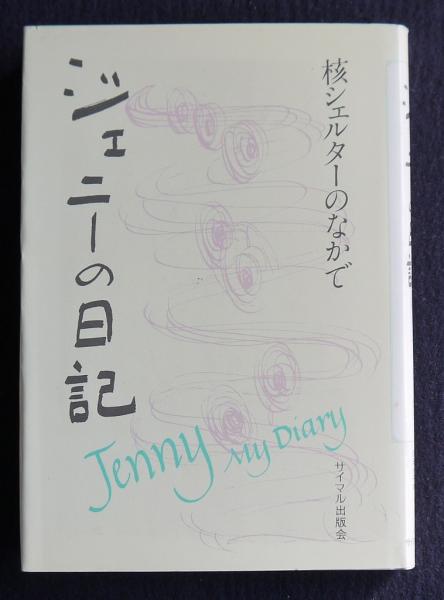 核シェルターのなかで
ジェニーの日記
Jenny My Diary
サイマル出版会